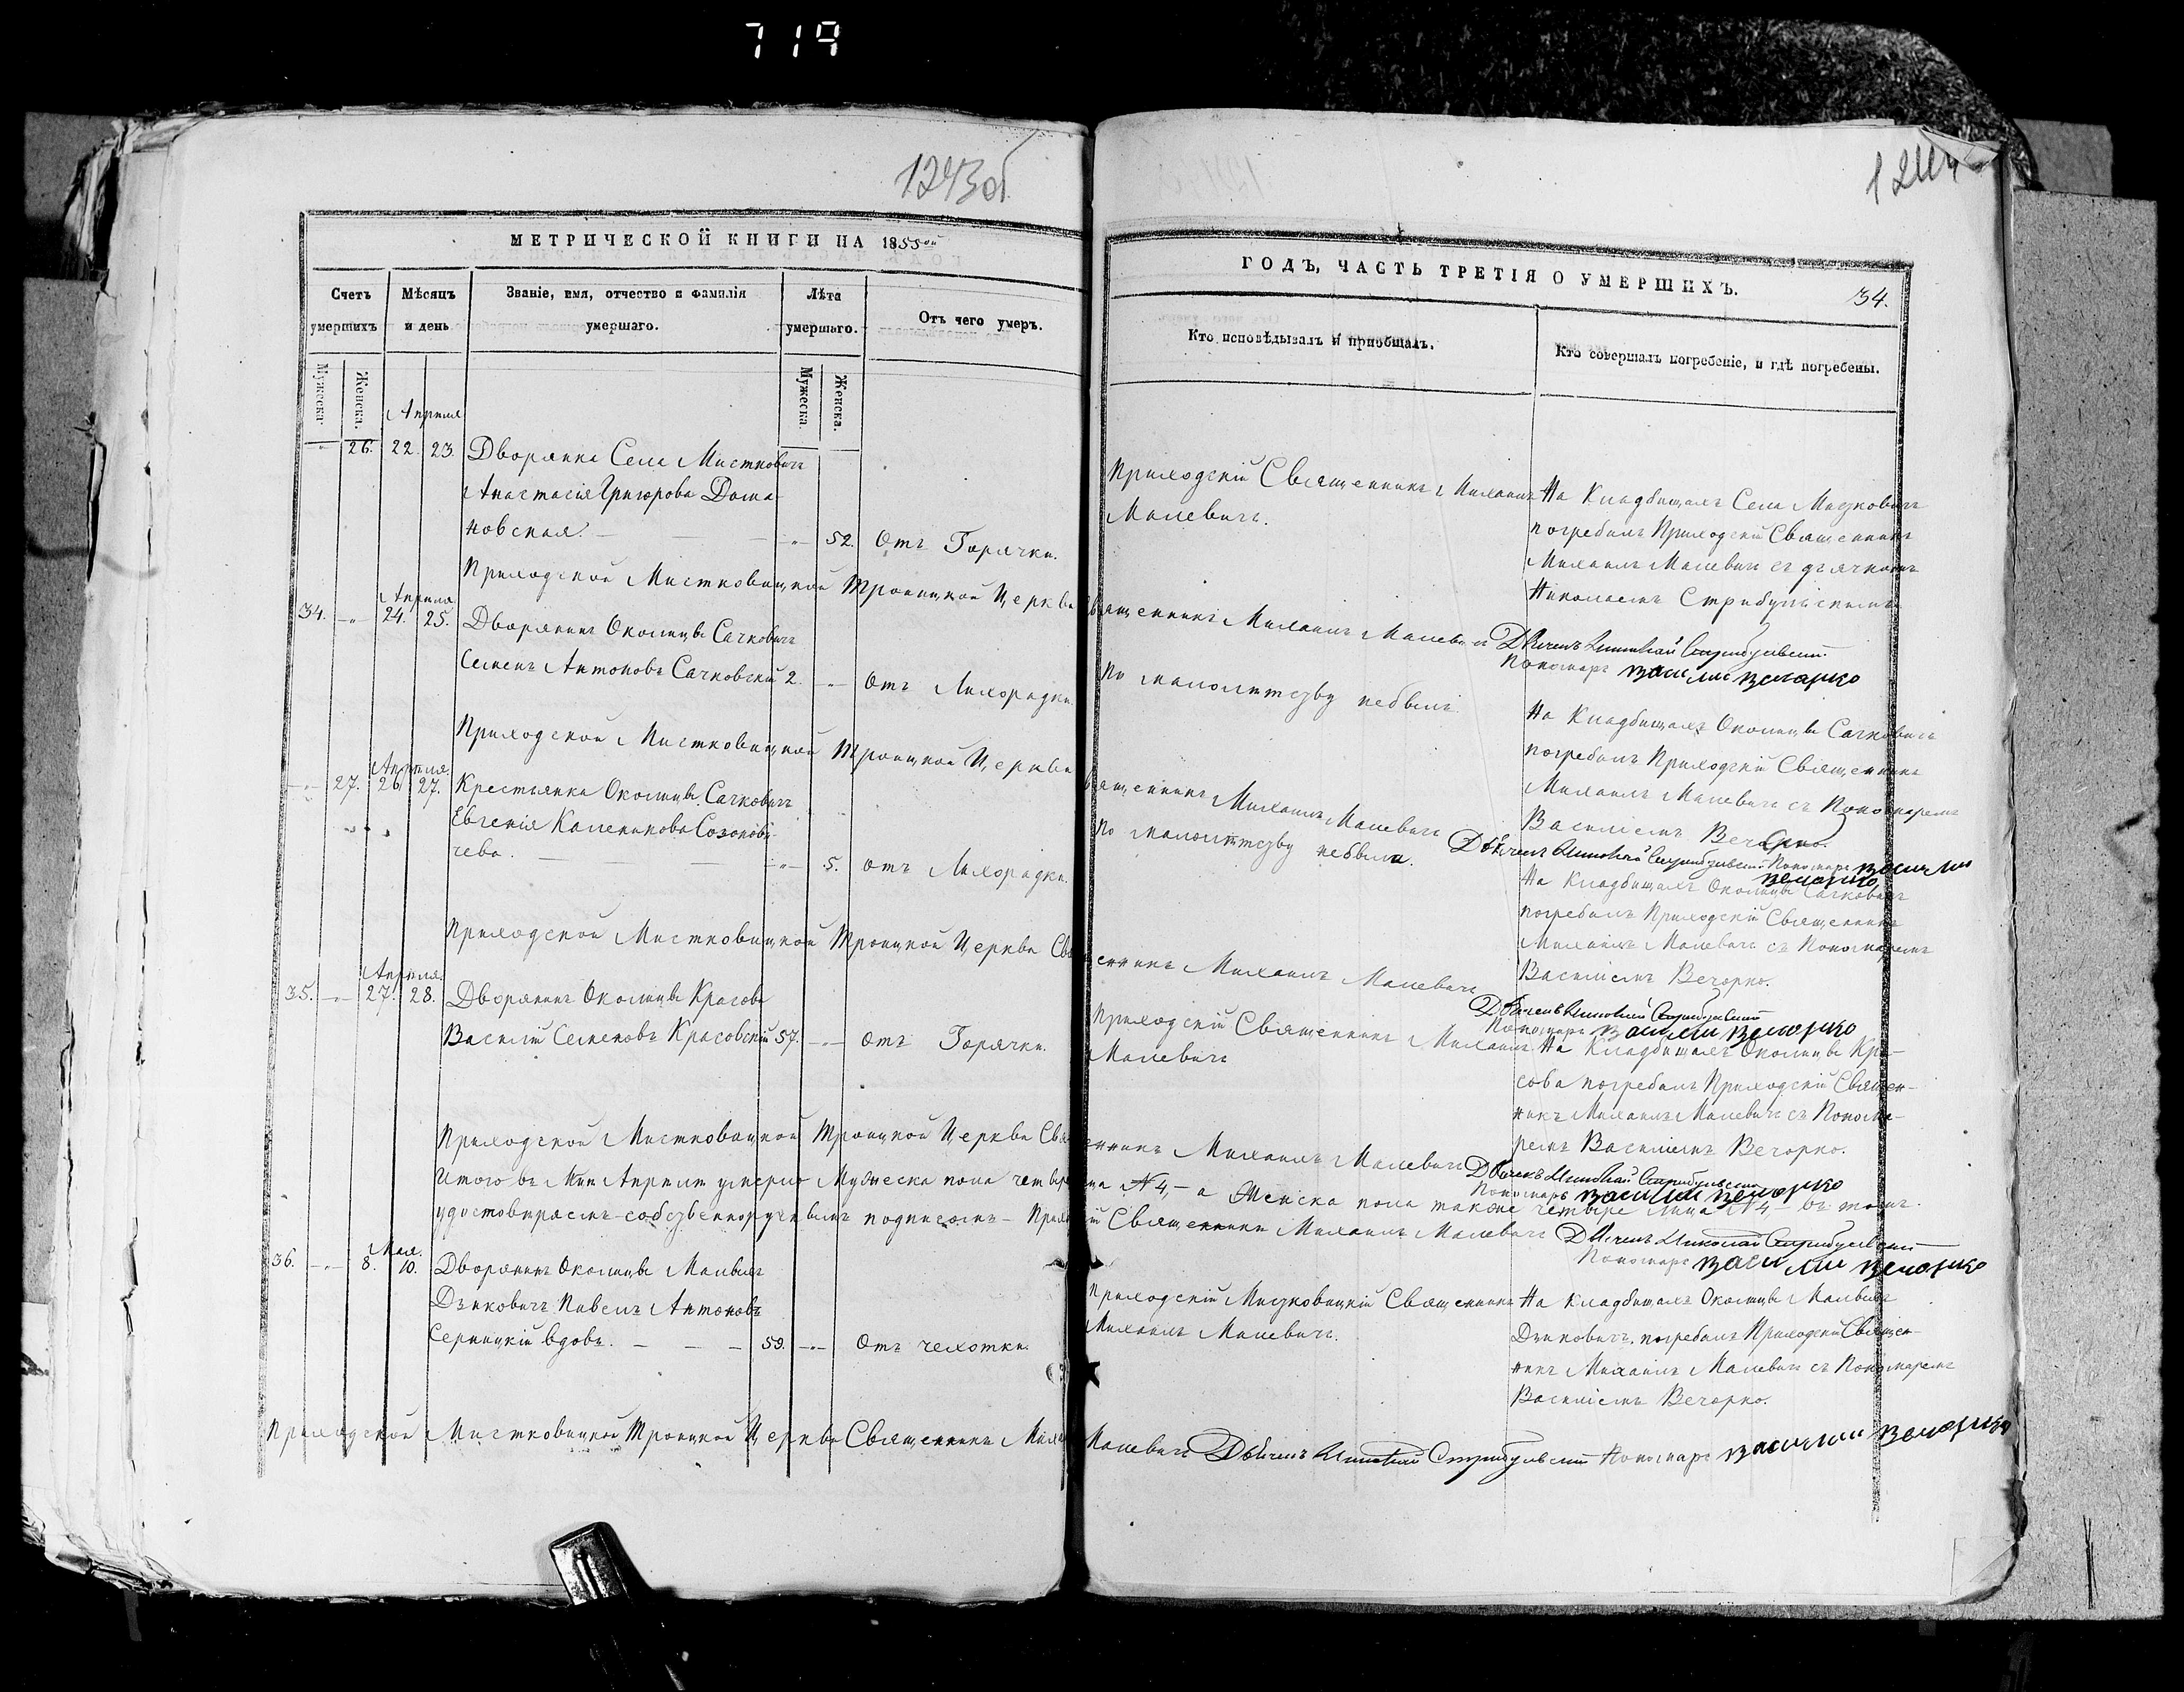 719
1243об
МЕТРИЧЕСКОЙ КНИГИ НА 1855ой
Счетъ умершихъ
Мѣсяцъ и день
Званіе, имя, отчество и фамилія умершаго.
Лѣта умершаго.
Отъ чего умеръ.
Мужеска.
Женска.
Мужеска.
Женска.
Апреля
26. 22. 23. Дворянка Села Мистковичъ
Анастасія Григорова Дома-
новская. 52. Отъ Горячки.
Приходской Мистковицкой Троицкой Церкви
Апреля
34. 24. 25. Дворянинъ Околицы Сачковичъ
Семенъ Антоновъ Сачковскій 2. Отъ Лихорадки
Приходской Мистковицкой Троицкой Церкви
Апреля
27. 26. 27. Крестьянка Околицы Сачковичъ
Евгенія Каленикова
чева. 5. отъ Лихорадки.
Приходской Мистковицкой Троицкой Церкви Свя
Апреля
35. 27. 28. Дворянинъ Околицы Красова
Василій Семеновъ Красовскій 57. отъ Горячки.
Приходской Мистковицкой Троицкой Церкви Свя
Итого въ Апреле умерло Мужеска пола четыре
удостовѣряемъ собственноручнымъ подписомъ - Прихо
Мая.
36. 8. 10. Дворянинъ Околицы
Дзиковичъ Павелъ Антоновъ
Серницкій вдовъ. 59. Отъ чехотки.
Приходской Мистковицкой Троицкой Церкви Священникъ Миха
1244
ГОДЪ, ЧАСТЬ ТРЕТІЯ О УМЕРШИХЪ.
34.
Кто исповѣдывалъ и пріобщалъ.
Кто совершалъ погребеніе, и гдѣ погребены.
Приходскій Священникъ Михаилъ
Малевичъ.
На Кладбищахъ Села Мизковичъ
погребалъ Приходскій Священникъ
Михаилъ Малевичъ съ дьячкомъ
Николаемъ Стрибульскимъ
ященникъ Михаилъ Малевичъ Дьячекъ Николай Стрибульскій
Пономарь Василий Вечорко
По малолетству небылъ
На Кладбищахъ Околицы Сачковичъ
погребалъ Приходскій Священникъ
Михаилъ Малевичъ съ Пономаремъ
Василіемъ Вечорко.
ященникъ Михаилъ Малевичъ
Дьячекъ Николай Стрибульскій Пономарь Василий
Вечорко
По малолетству небыла.
На Кладбищахъ Околицы Сачковичъ
погребалъ Приходскій Священникъ
Михаилъ Малевичъ съ Пономаремъ
Василіемъ Вечорко.
енникъ Михаилъ Малевичъ
Дьячекъ Николай Стрибульскій
Пономарь Василий Вечорко
Приходскій Священникъ Михаилъ
Малевичъ
На Кладбищахъ Околицы Кра-
сова погребалъ Приходскій Священ-
никъ Михаилъ Малевичъ съ Понома-
ремъ Василіемъ Вечорко.
енникъ Михаилъ Малевичъ Дьячекъ Николай Стрибульскій
Пономарь Василий Вечорко
№ 4, - а Женска пола также четыре лица № 4 - въ томъ.
й Священникъ Михаилъ Малевичъ Дьячекъ Николай Стрибульскій
Пономарь Василий Вечорко
Приходскій Мизковицкій Священникъ
Михаилъ Малевичъ.
На Кладбищахъ Околицы
Дзиковичъ погребалъ Приходскій Священ-
никъ Михаилъ Малевичъ съ Пономаремъ
Василіемъ Вечорко.
Малевичъ Дьячекъ Николай Стрибульскій Пономарь Василий Вечорко